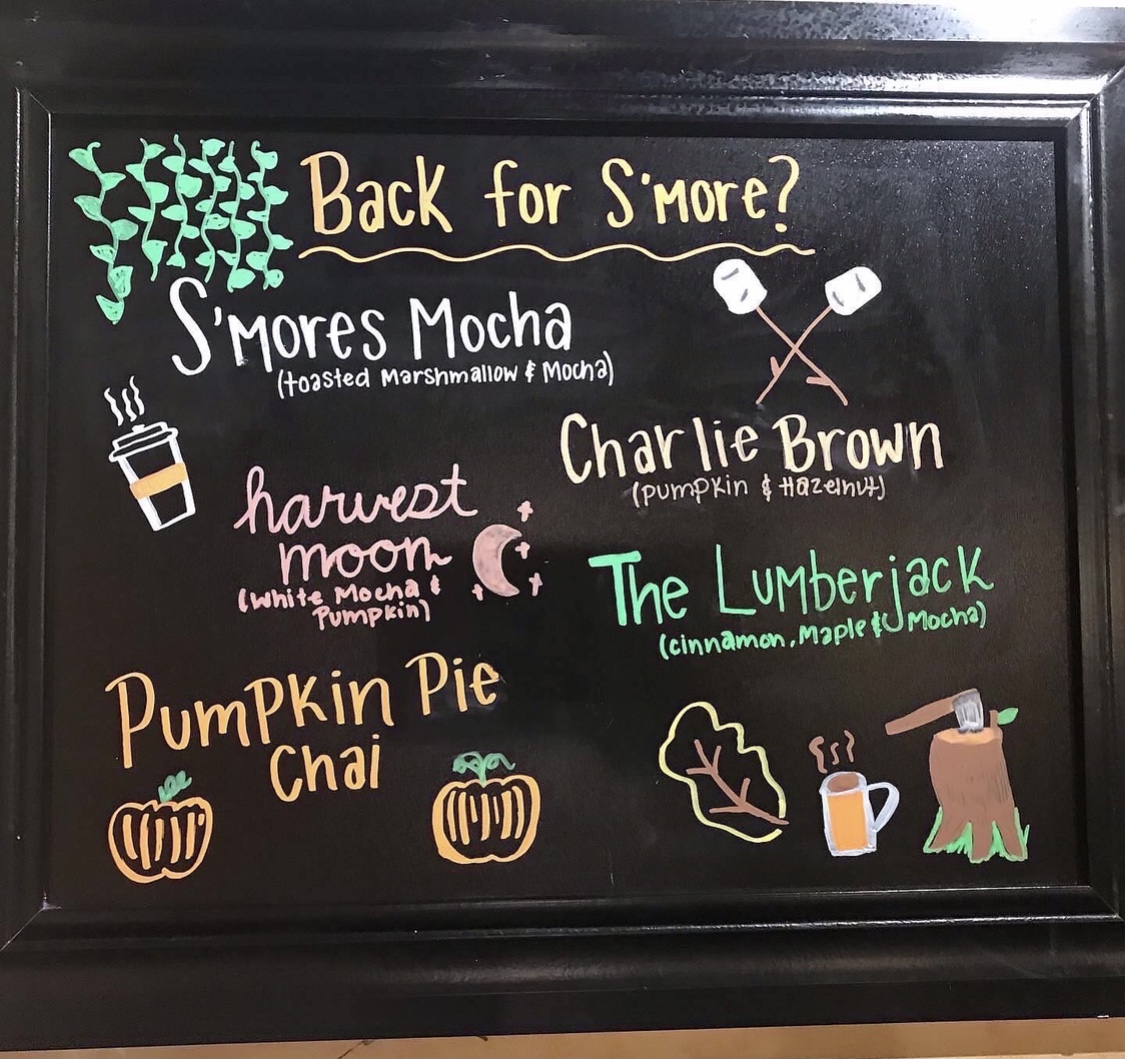 Back for S'more?
S'mores Mocha
(toasted Marshmallow & Mocha)
Charlie Brown
(pumpkin & Hazelnut)
harvest
moon
(White Mocha &
Pumpkin)
The Lumberjack
(cinnamon, Maple & Mocha)
Pumpkin Pie
Chai